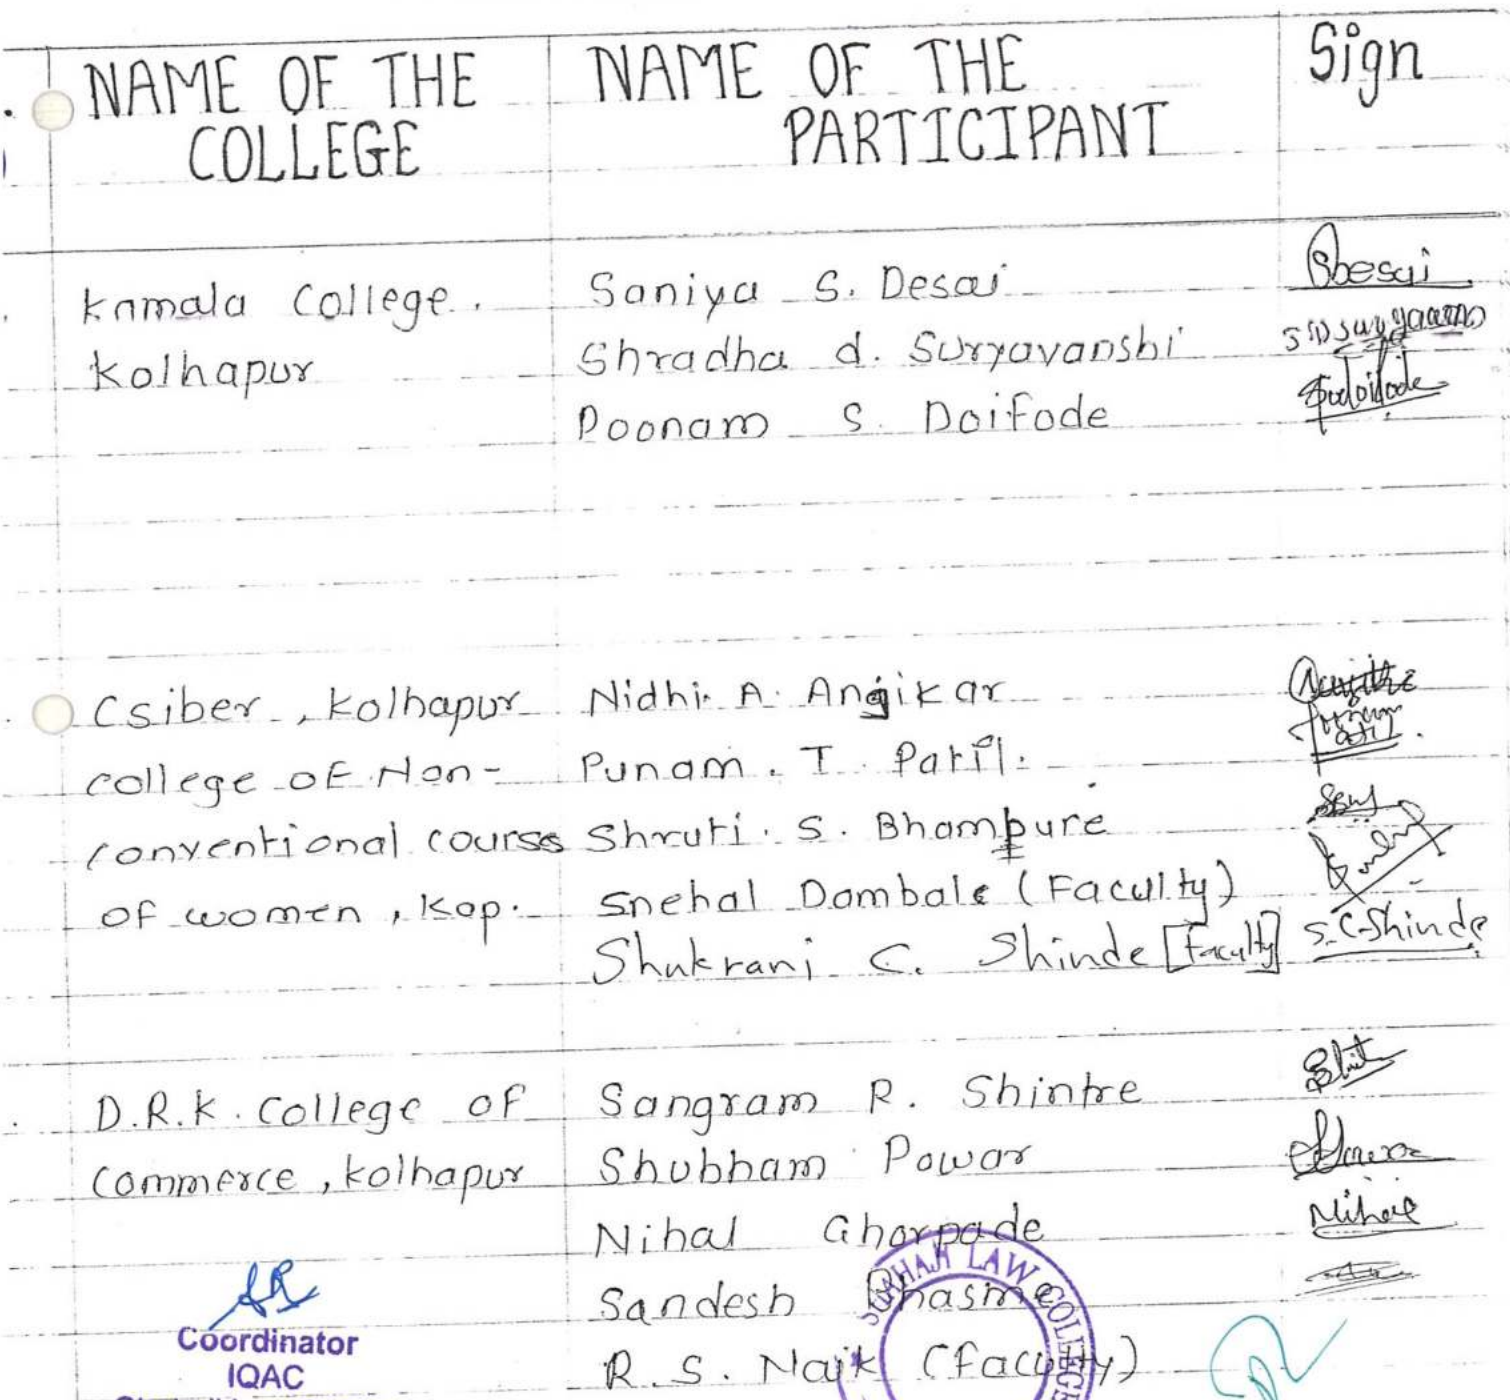 NAME OF THE COLLEGE
NAME OF THE PARTICIPANT
Sign
Kamala College.
Kolhapur
Saniya S. Desai
Shradha d. Suryavanshi
Poonam S. Doifode
SDesai
Csiber, Kolhapur
college of Non-
conventional courss
of women, Kop.
Nidhi A. Angikar
Punam. T. Patil.
Shruti. S. Bhampure
Snehal Dambale (Faculty)
Shukrani C. Shinde [Faculty]
S.C.Shinde
D.R.K. College of
Commerce, Kolhapur
Sangram R. Shintre
Shubham Powar
Nihal Ghorpade
Sandesh Dhasme
R. S. Naik (Faculty)
Nihal
Coordinator
IQAC
LAW COLLEGE